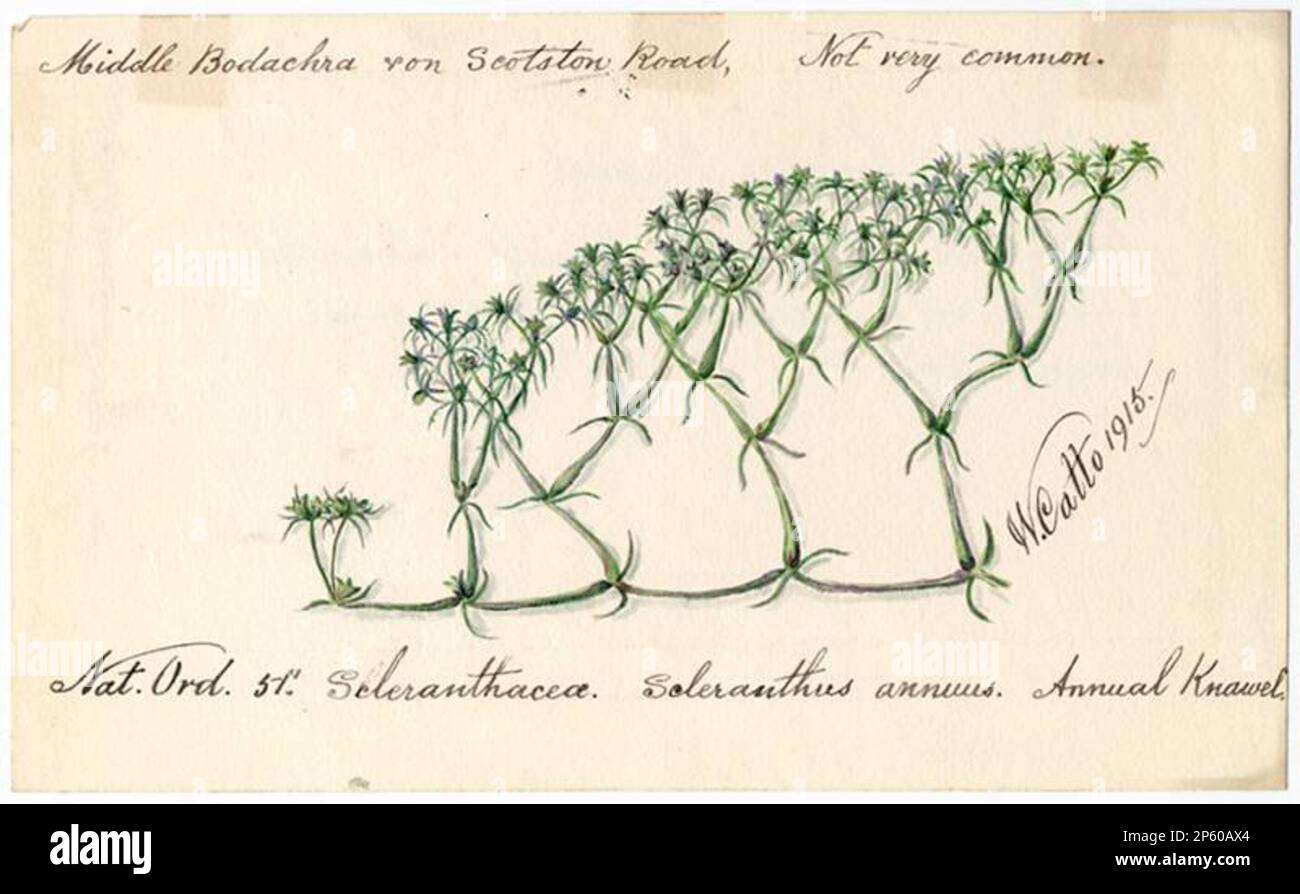 Middle Bodachra von Scotston Road, Not very common.
W. Catto 1915.
Nat. Ord. 51. Scleranthaceæ. Scleranthus annuus. Annual Knawel.
alamy
Image ID: 2P60AX4
www.alamy.com